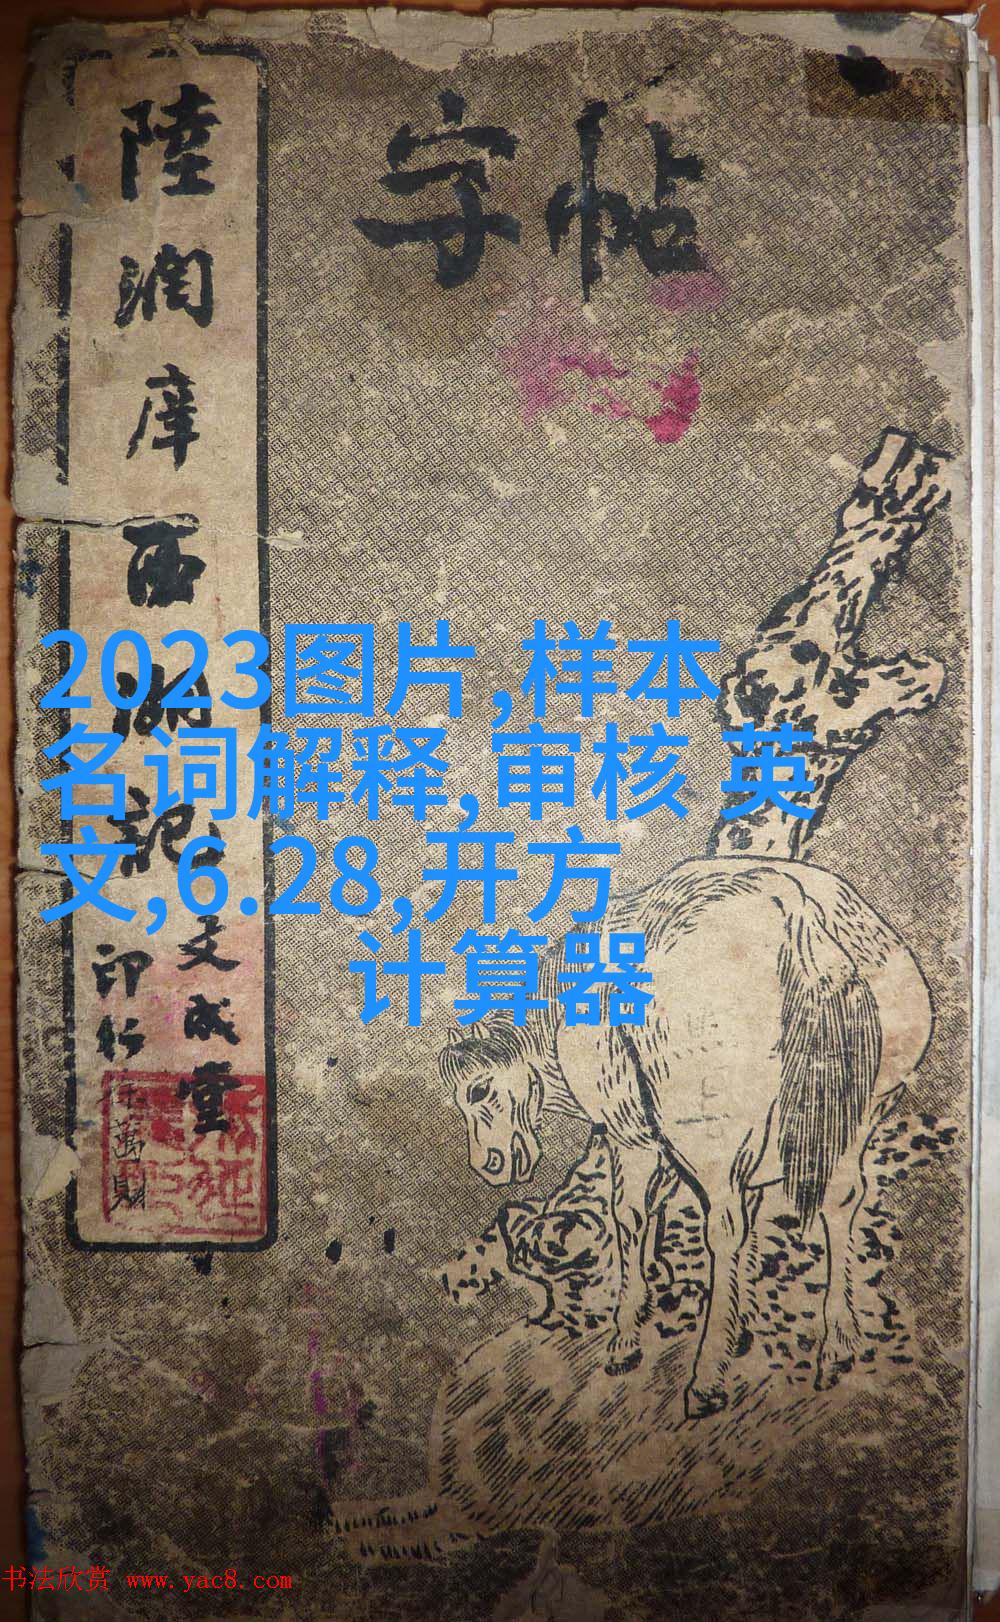 字帖
陸潤庠西湖記
文成堂
印行
徐萬財
2023图片,样本
名词解释,审核 英
文,6.28,开方
计算器
书法欣赏 www.yac8.com